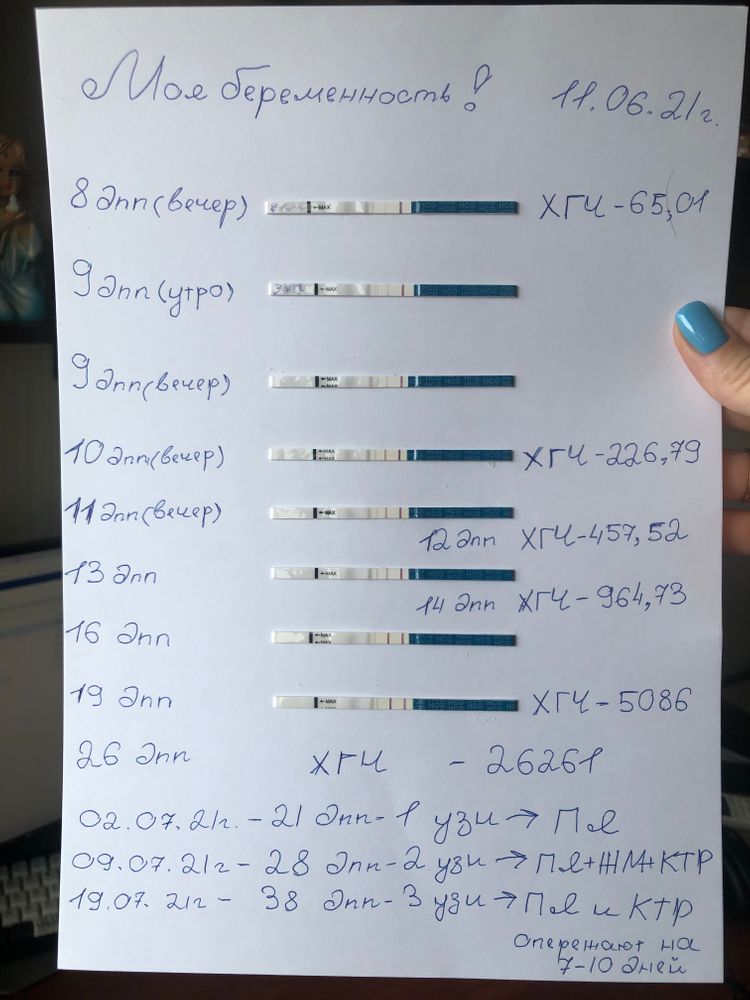 Моя беременность! 11.06.21г.
8 дпп (вечер) ←MAX ХГЧ - 65,01
9 дпп (утро) ←MAX
9 дпп (вечер) ←MAX
10 дпп (вечер) ←MAX ХГЧ - 226,79
11 дпп (вечер) ←MAX
12 дпп ХГЧ - 457,52
13 дпп ←MAX
14 дпп ХГЧ - 964,73
16 дпп ←MAX
19 дпп ←MAX ХГЧ - 5086
26 дпп ХГЧ - 26261
02.07.21г. - 21 дпп - 1 узи → ПЯ
09.07.21г - 28 дпп - 2 узи → ПЯ+ЖМ+КТР
19.07.21г - 38 дпп - 3 узи → ПЯ и КТР
опережают на
7-10 дней